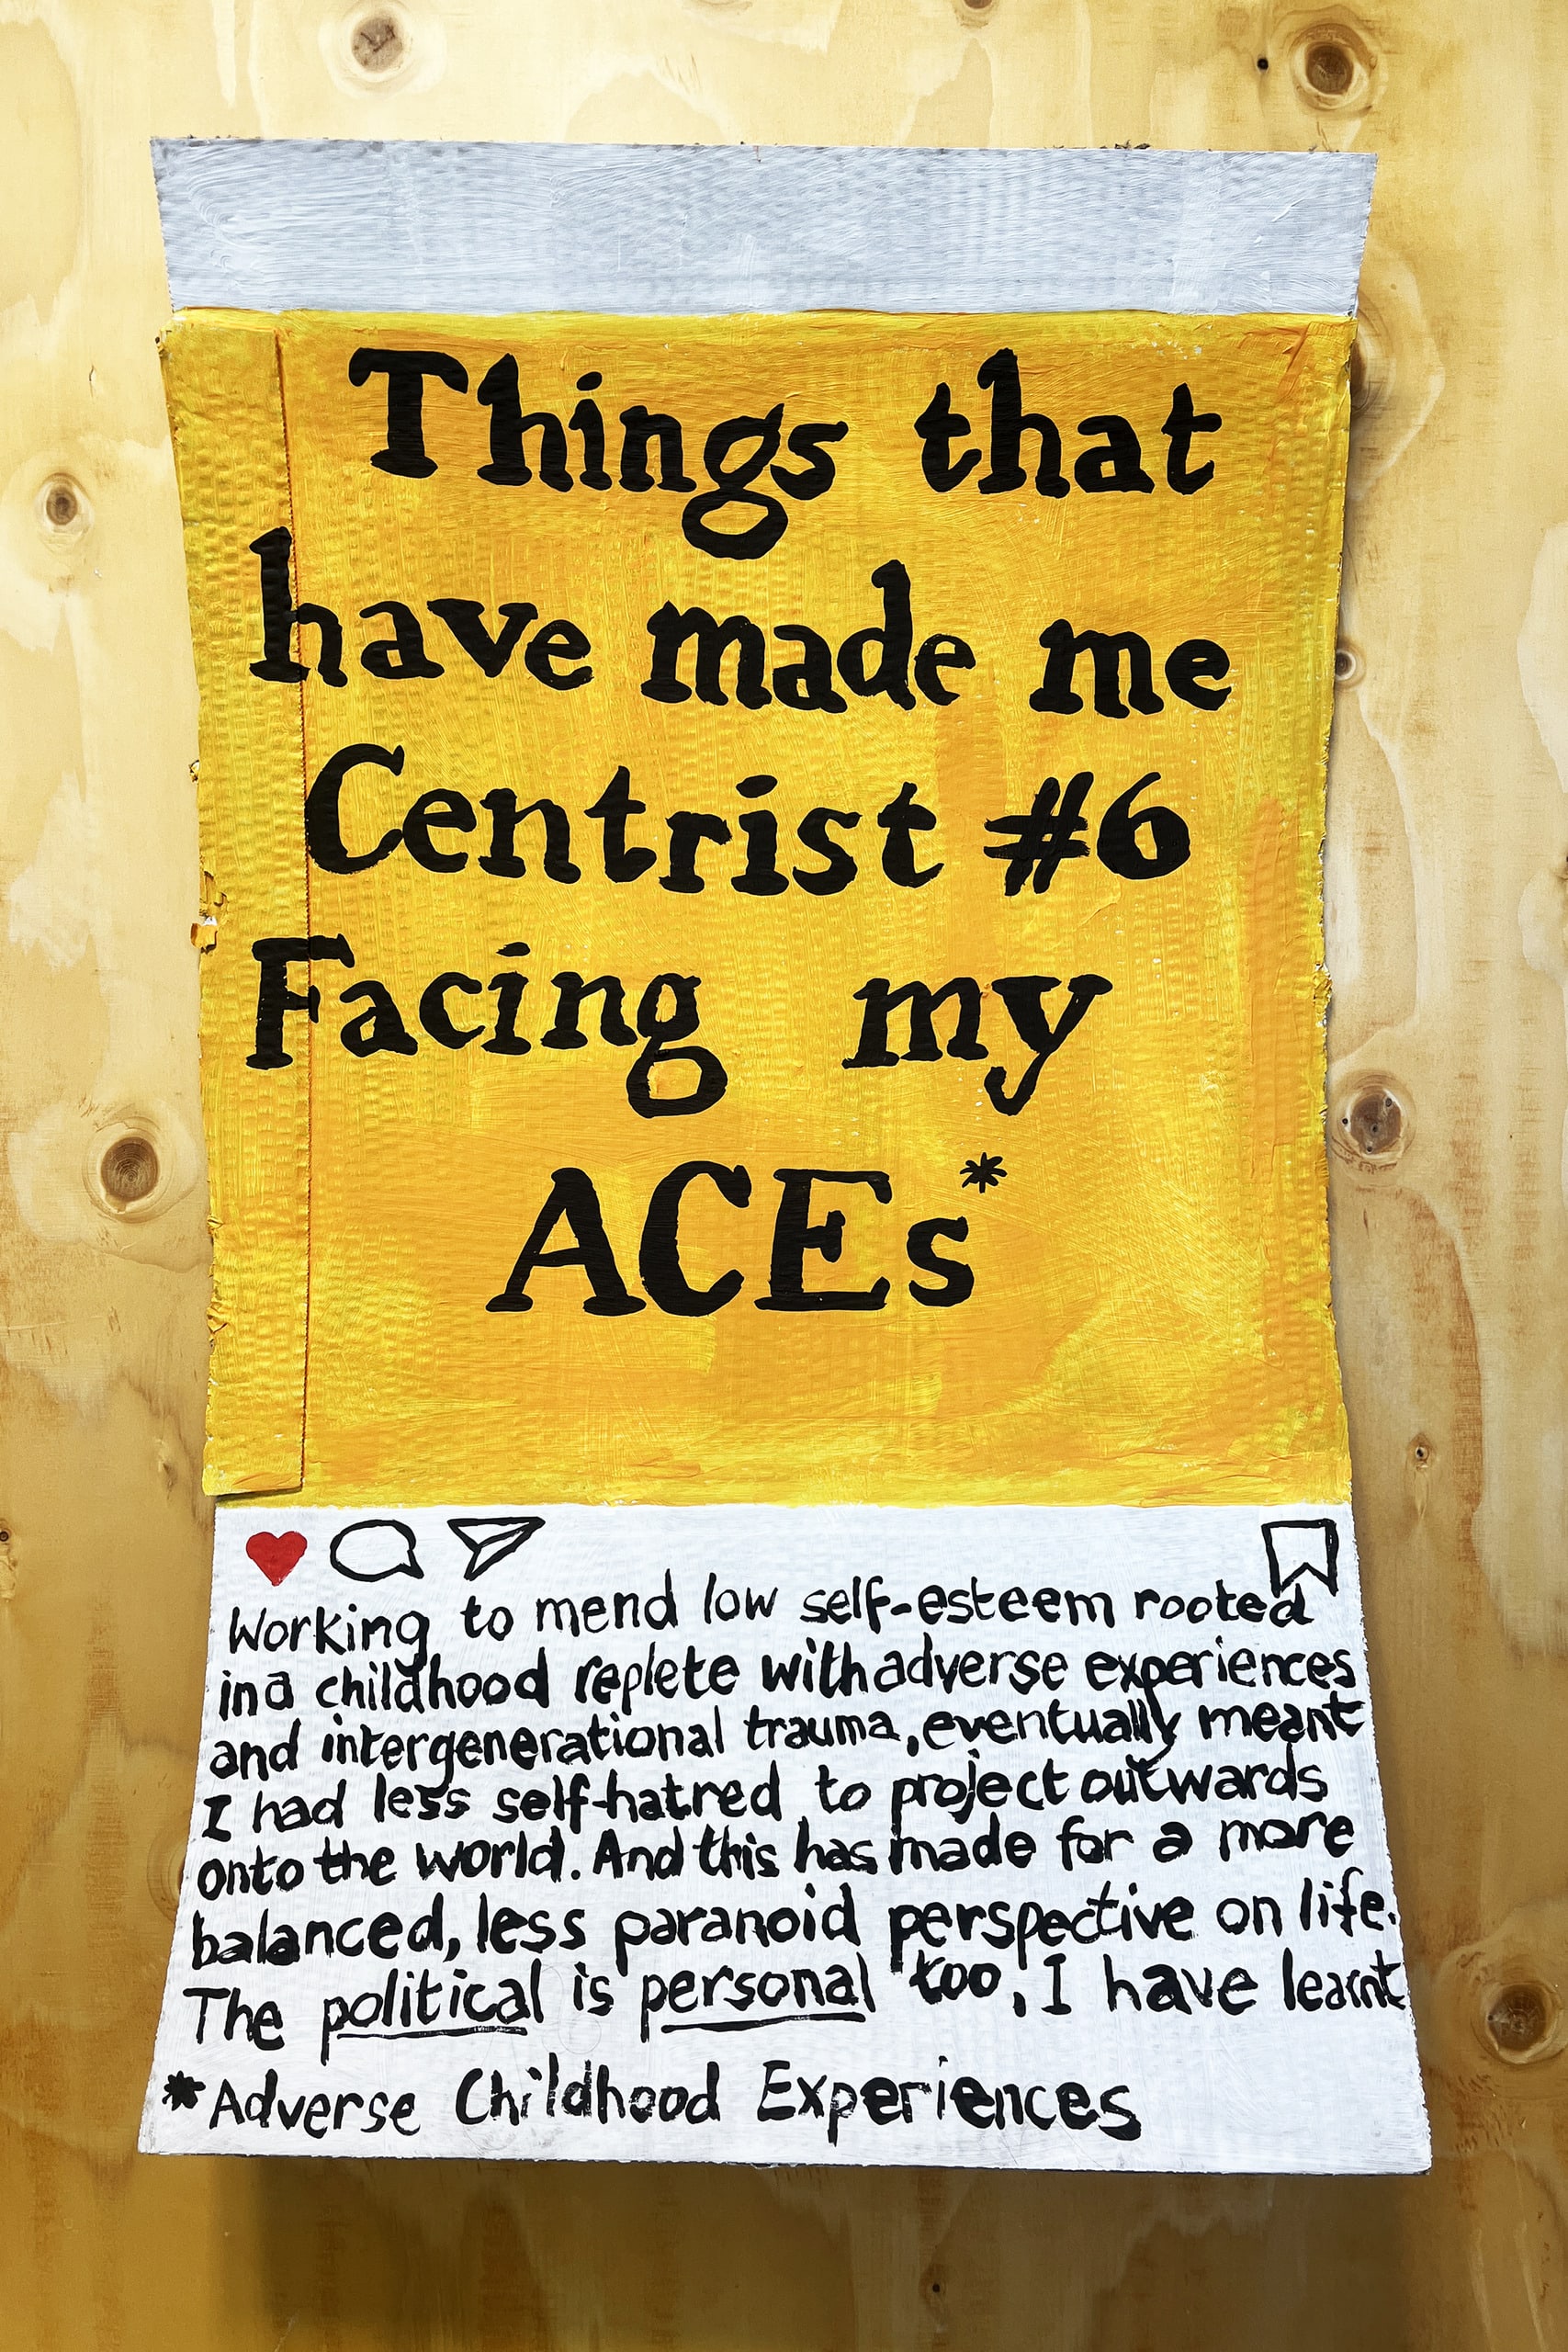 Things that
have made me
Centrist #6
Facing my
ACEs*
Working to mend low self-esteem rooted
in a childhood replete with adverse experiences
and intergenerational trauma, eventually meant
I had less self-hatred to project outwards
onto the world. And this has made for a more
balanced, less paranoid perspective on life.
The political is personal too, I have learnt
*Adverse Childhood Experiences